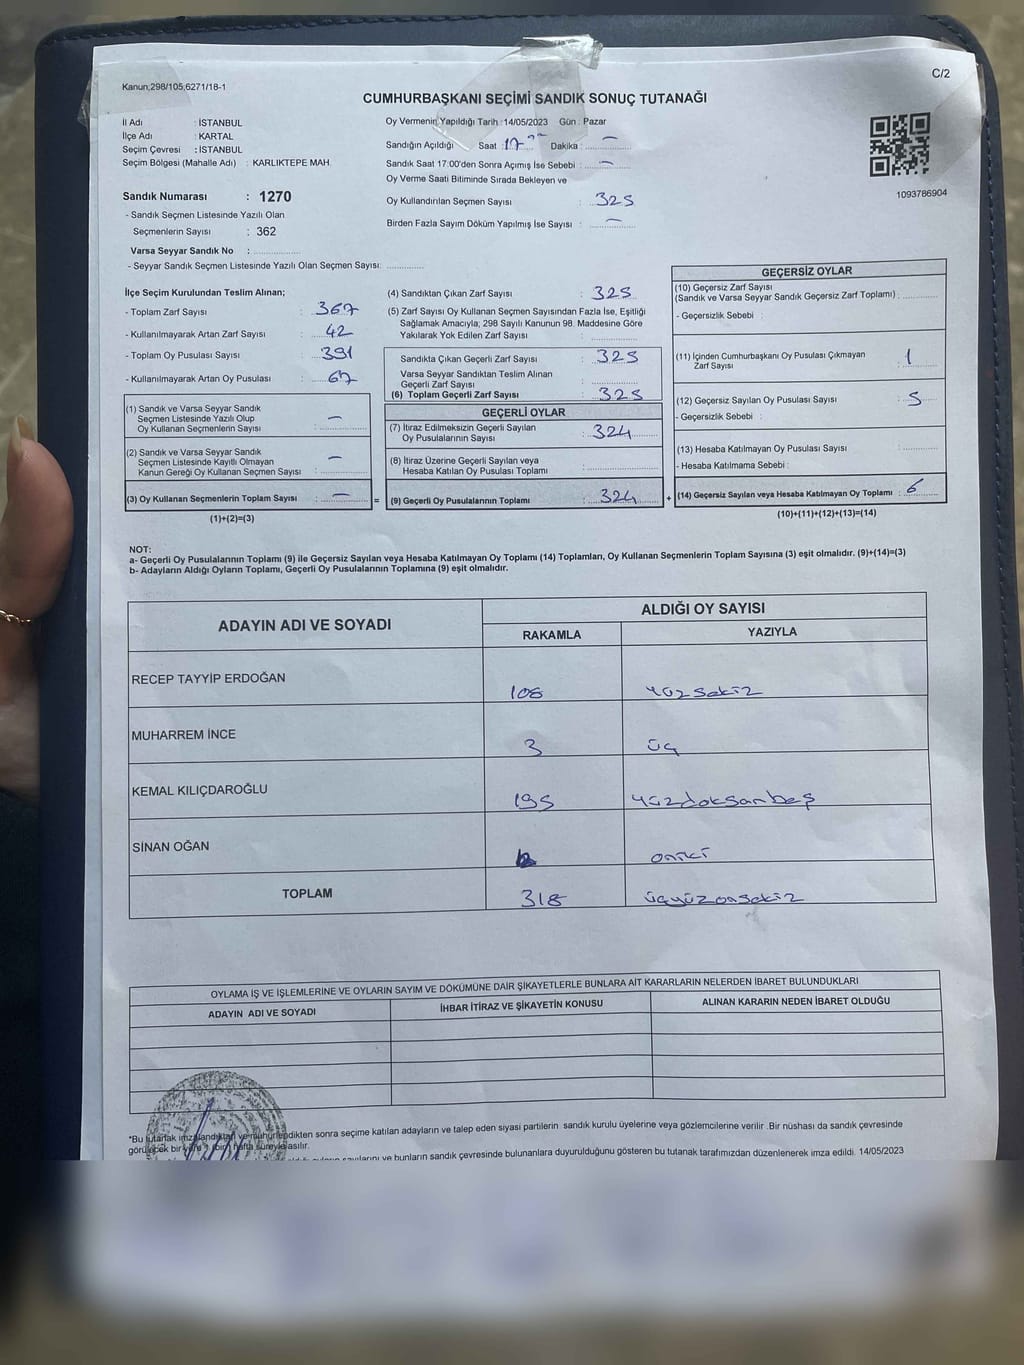 Kanun;298/105,6271/18-1
C/2
CUMHURBAŞKANI SEÇİMİ SANDIK SONUÇ TUTANAĞI
İl Adı : İSTANBUL
İlçe Adı : KARTAL
Seçim Çevresi : İSTANBUL
Seçim Bölgesi (Mahalle Adı) : KARLIKTEPE MAH.
Sandık Numarası : 1270
- Sandık Seçmen Listesinde Yazılı Olan
Seçmenlerin Sayısı : 362
Varsa Seyyar Sandık No :
- Seyyar Sandık Seçmen Listesinde Yazılı Olan Seçmen Sayısı:
Oy Vermenin Yapıldığı Tarih : 14/05/2023 Gün : Pazar
Sandığın Açıldığı Saat : 17 Dakika : —
Sandık Saat 17:00'den Sonra Açımış İse Sebebi : —
Oy Verme Saati Bitiminde Sırada Bekleyen ve
Oy Kullandırılan Seçmen Sayısı : 325
Birden Fazla Sayım Döküm Yapılmış İse Sayısı : —
1093786904
İlçe Seçim Kurulundan Teslim Alınan;
- Toplam Zarf Sayısı : 367
- Kullanılmayarak Artan Zarf Sayısı : 42
- Toplam Oy Pusulası Sayısı : 391
- Kullanılmayarak Artan Oy Pusulası : 67
(1) Sandık ve Varsa Seyyar Sandık
Seçmen Listesinde Yazılı Olup
Oy Kullanan Seçmenlerin Sayısı : —
(2) Sandık ve Varsa Seyyar Sandık
Seçmen Listesinde Kayıtlı Olmayan
Kanun Gereği Oy Kullanan Seçmen Sayısı : —
(3) Oy Kullanan Seçmenlerin Toplam Sayısı : — =
(1)+(2)=(3)
(4) Sandıktan Çıkan Zarf Sayısı : 325
(5) Zarf Sayısı Oy Kullanan Seçmen Sayısından Fazla İse, Eşitliği
Sağlamak Amacıyla; 298 Sayılı Kanunun 98. Maddesine Göre
Yakılarak Yok Edilen Zarf Sayısı :
Sandıkta Çıkan Geçerli Zarf Sayısı : 325
Varsa Seyyar Sandıktan Teslim Alınan
Geçerli Zarf Sayısı :
(6) Toplam Geçerli Zarf Sayısı : 325
GEÇERLİ OYLAR
(7) İtiraz Edilmeksizin Geçerli Sayılan
Oy Pusulalarının Sayısı : 324
(8) İtiraz Üzerine Geçerli Sayılan veya
Hesaba Katılan Oy Pusulası Toplamı :
(9) Geçerli Oy Pusulalarının Toplamı : 324 +
GEÇERSİZ OYLAR
(10) Geçersiz Zarf Sayısı
(Sandık ve Varsa Seyyar Sandık Geçersiz Zarf Toplamı) :
- Geçersizlik Sebebi :
(11) İçinden Cumhurbaşkanı Oy Pusulası Çıkmayan
Zarf Sayısı : 1
(12) Geçersiz Sayılan Oy Pusulası Sayısı : 5
- Geçersizlik Sebebi :
(13) Hesaba Katılmayan Oy Pusulası Sayısı :
- Hesaba Katılmama Sebebi :
(14) Geçersiz Sayılan veya Hesaba Katılmayan Oy Toplamı : 6
(10)+(11)+(12)+(13)=(14)
NOT:
a- Geçerli Oy Pusulalarının Toplamı (9) ile Geçersiz Sayılan veya Hesaba Katılmayan Oy Toplamı (14) Toplamları, Oy Kullanan Seçmenlerin Toplam Sayısına (3) eşit olmalıdır. (9)+(14)=(3)
b- Adayların Aldığı Oyların Toplamı, Geçerli Oy Pusulalarının Toplamına (9) eşit olmalıdır.
ADAYIN ADI VE SOYADI ALDIĞI OY SAYISI
RAKAMLA YAZIYLA
RECEP TAYYİP ERDOĞAN 108 yüzsekiz
MUHARREM İNCE 3 üç
KEMAL KILIÇDAROĞLU 195 yüzdoksanbeş
SİNAN OĞAN 12 oniki
TOPLAM 318 üçyüzonsekiz
OYLAMA İŞ VE İŞLEMLERİNE VE OYLARIN SAYIM VE DÖKÜMÜNE DAİR ŞİKAYETLERLE BUNLARA AİT KARARLARIN NELERDEN İBARET BULUNDUKLARI
ADAYIN ADI VE SOYADI İHBAR İTİRAZ VE ŞİKAYETİN KONUSU ALINAN KARARIN NEDEN İBARET OLDUĞU
*Bu tutanak imzalandıktan ve mühürlendikten sonra seçime katılan adayların ve talep eden siyasi partilerin sandık kurulu üyelerine veya gözlemcilerine verilir .Bir nüshası da sandık çevresinde
görülecek bir yere 1 (bir) hafta süreyle asılır.
ve bunların sandık çevresinde bulunanlara duyurulduğunu gösteren bu tutanak tarafımızdan düzenlenerek imza edildi. 14/05/2023